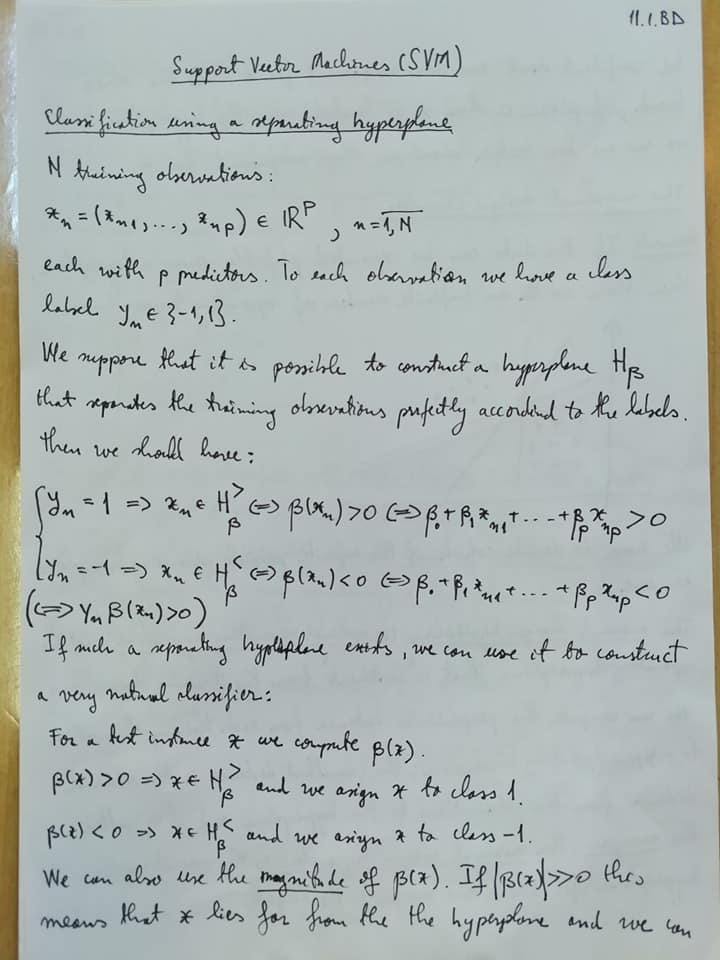 11.1.BD
Support Vector Machines (SVM)
Classification using a separating hyperplane
N training observations:
x_n = (x_{n1}, ..., x_{np}) ∈ ℝ^p, n = \overline{1,N}
each with p predictors. To each observation we have a class
label y_n ∈ {-1,1}.
We suppose that it is possible to construct a hyperplane H_β
that separates the training observations perfectly accordind to the labels.
Then we should have:
{ y_n = 1 => x_n ∈ H_β^> <=> β(x_n) > 0 <=> β_0 + β_1 x_{n1} + ... + β_p x_{np} > 0
y_n = -1 => x_n ∈ H_β^< <=> β(x_n) < 0 <=> β_0 + β_1 x_{n1} + ... + β_p x_{np} < 0
(<=> y_n β(x_n) > 0)
If such a separating hyperplane exists, we can use it to construct
a very natural classifier:
For a test instance x we compute β(x).
β(x) > 0 => x ∈ H_β^> and we asign x to class 1.
β(x) < 0 => x ∈ H_β^< and we asign x to class -1.
We can also use the magnitude of β(x). If |β(x)| >> 0 this
means that x lies far from the the hyperplane and we can